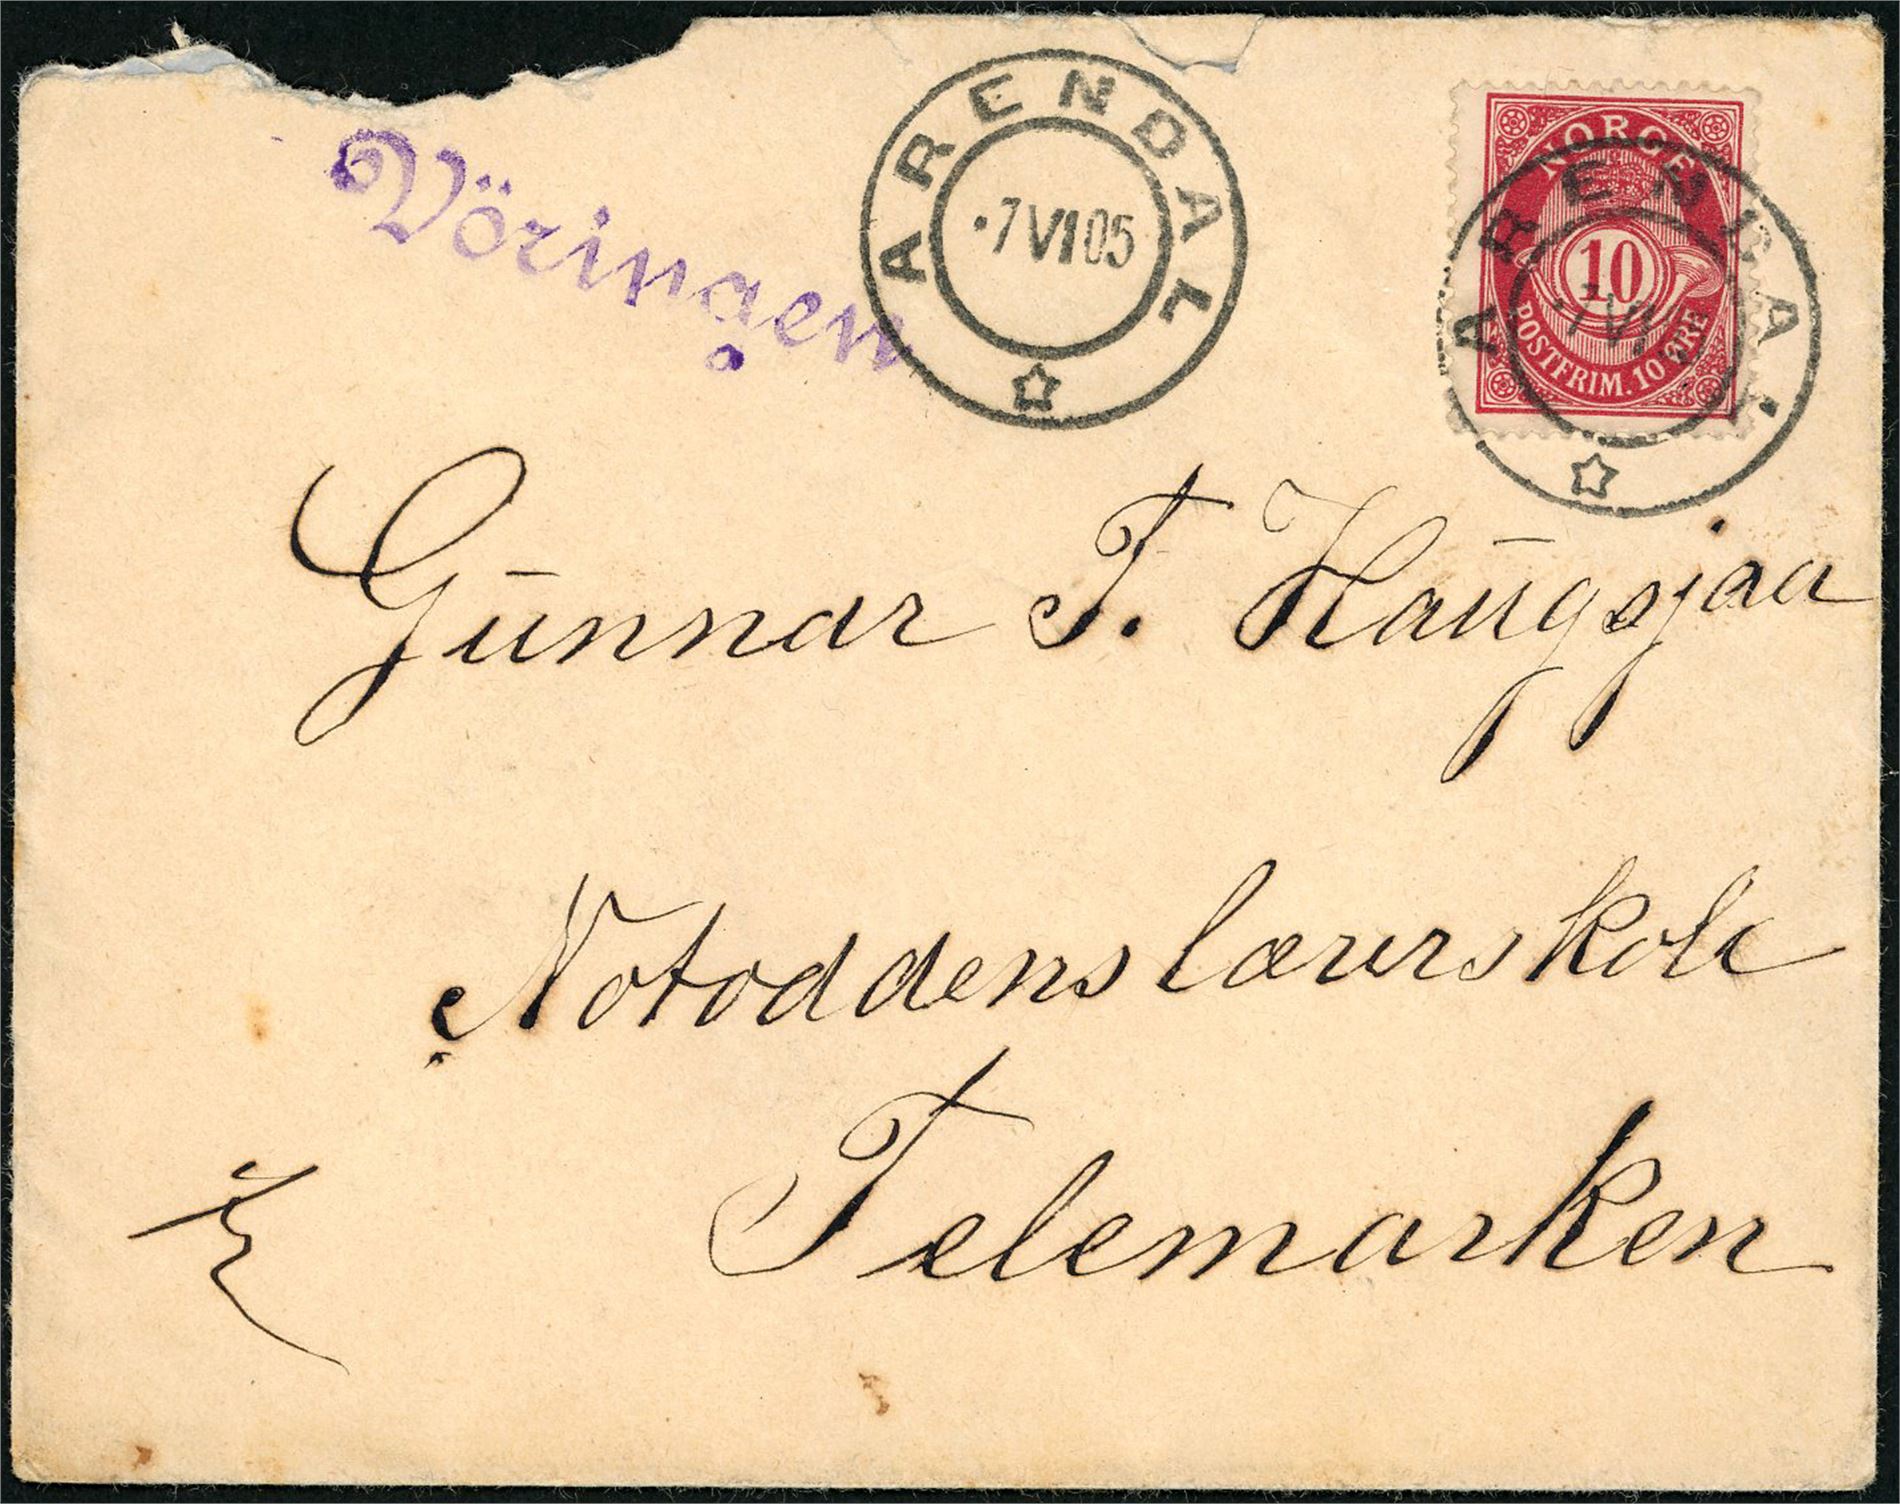 Vöringen
ARENDAL
7 VI 05
NORGE
10
POSTFRIM. 10 ØRE
ARENDAL
7 VI
Gunnar T. Haugsjaa
Notoddens lærerskole
Telemarken